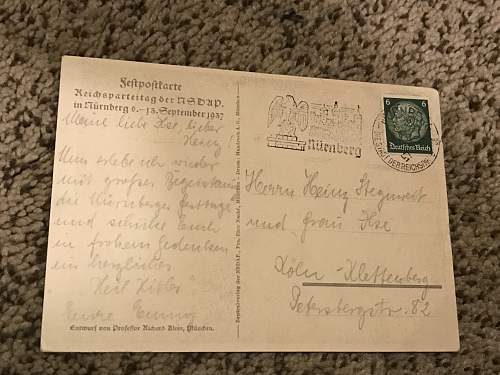 Festpostkarte
Reichsparteitag der NSDAP.
in Nürnberg 6.-13. September 1937
Meine liebe Ilse, lieber
Heinz
Nun erlebe ich wieder
mit großer
die Nürnberger Festtage
und schicke Euch
in frohem Gedenken
ein herzliches
Heil Hitler
Eure
Entwurf von Professor Richard Klein, München.
Nürnberg
6 6
Deutsches Reich
DER REICHSPARTEITAGE
Herrn Heinz Stegu weit
und Frau Ilse
Köln - Klettenberg
Petersbergstr. 82